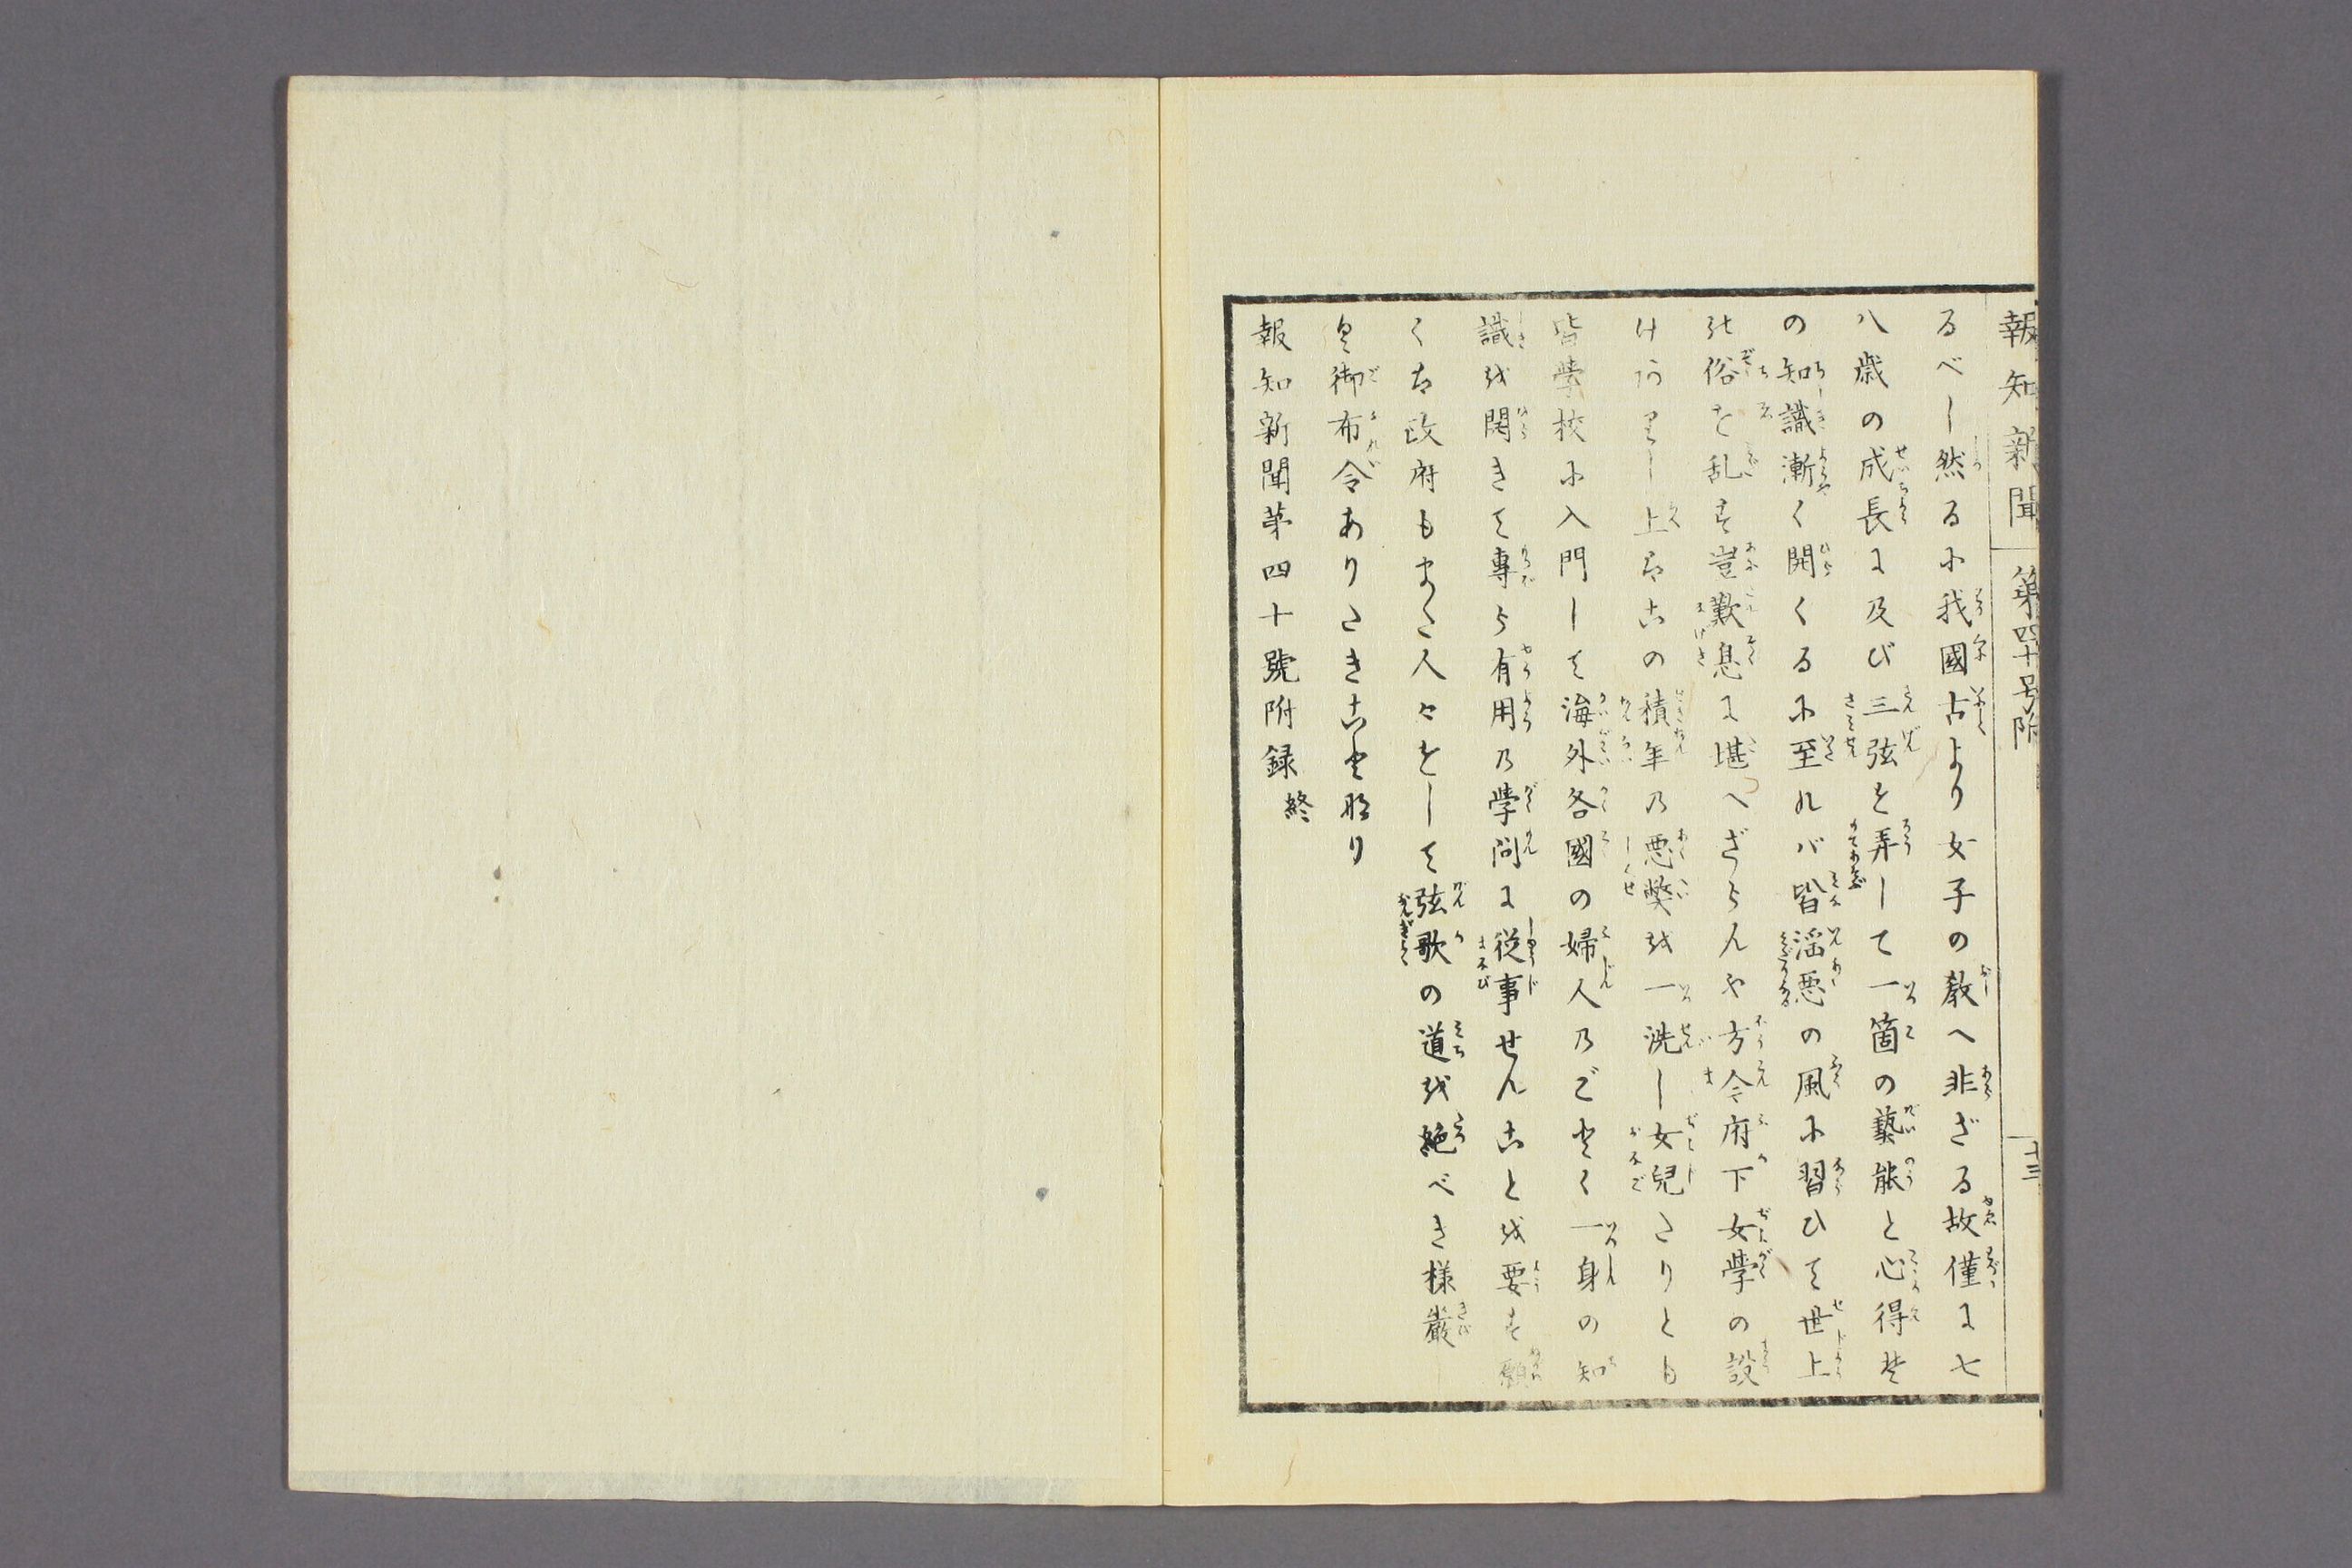 報知新聞 第四十号附 十三
るべし然るに我國古より女子の教へ非ざる故僅に七
八歳の成長に及び三弦を弄して一箇の藝能と心得其
の知識漸く開くるに至れバ皆淫悪の風に習ひて世上
の俗を乱す豈歎息に堪へざらんや方今府下女學の設
けありし上はこの積年の悪弊を一洗し女兒たりとも
皆學校に入門して海外各國の婦人のごとく一身の知
識を開きて專ら有用の學問に従事せんことを要す願
くは政府もまた人々をして弦歌の道を絶べき様嚴
御布令ありたきことなり
報知新聞第四十號附録 終